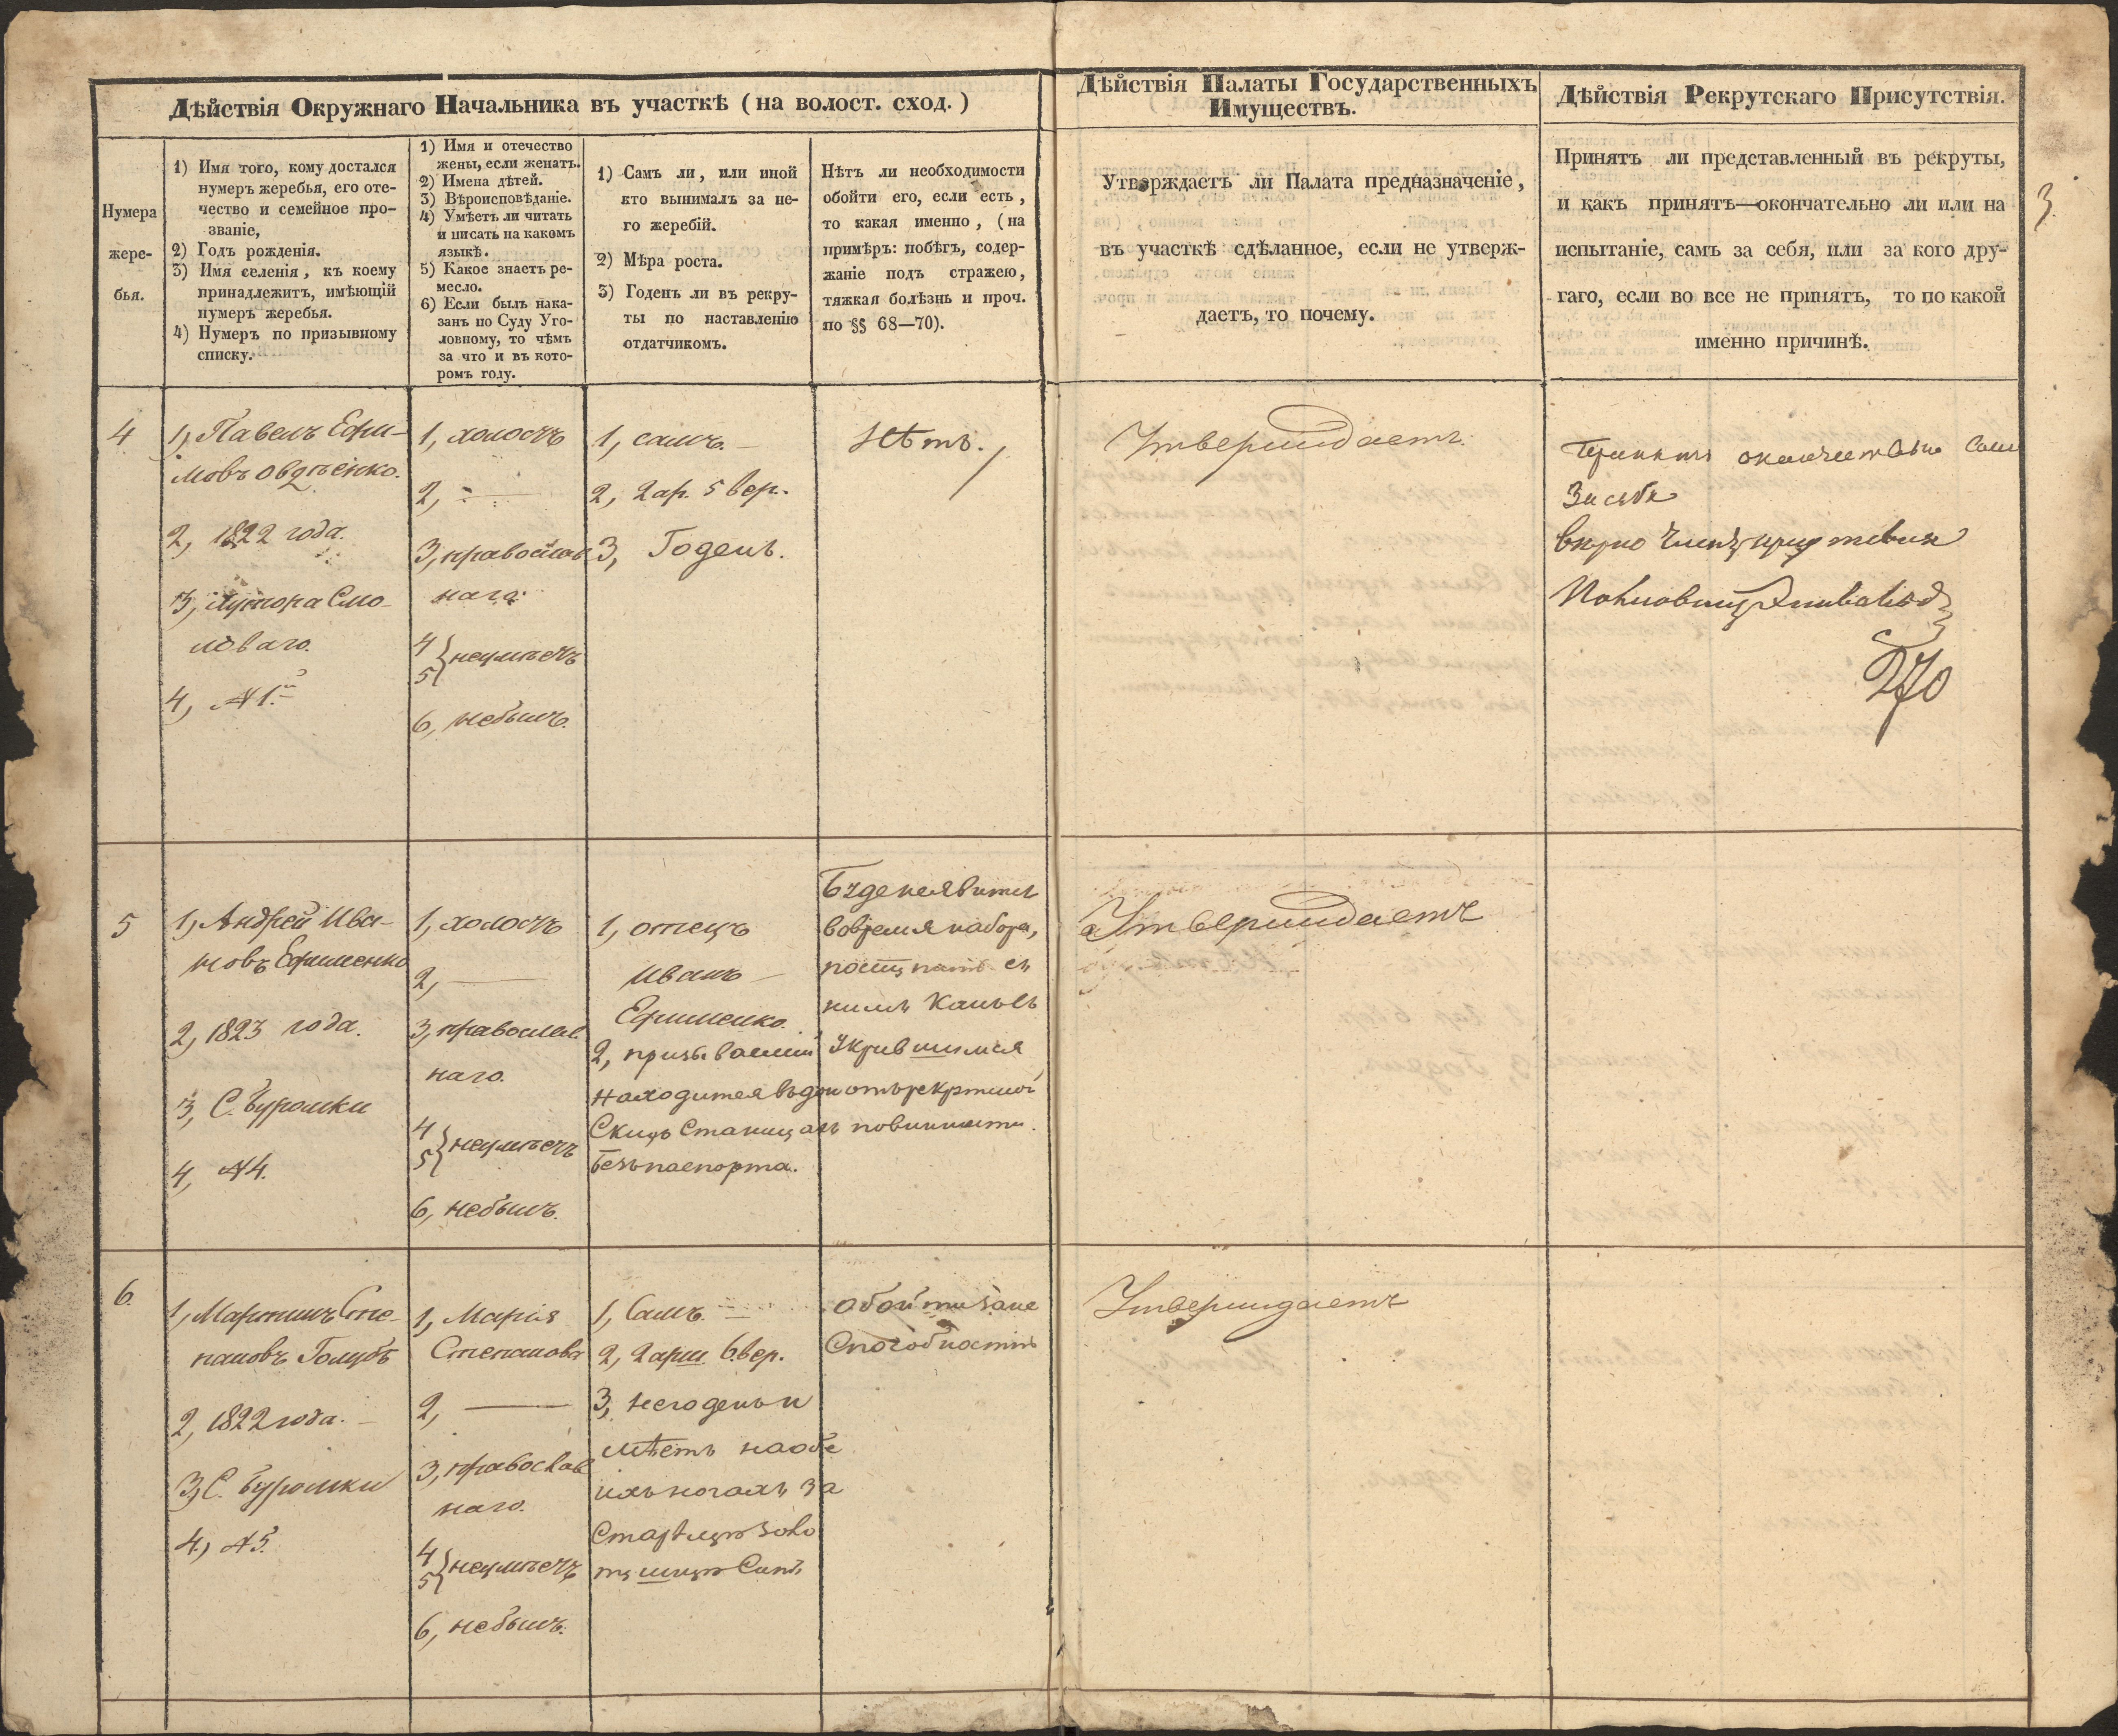 Дѣйствія Окружнаго Начальника въ участкѣ (на волост. сход.)
Нумера
жере-
бья.
1) Имя того, кому достался
нумеръ жеребья, его оте-
чество и семейное про-
званіе,
2) Годъ рожденія.
3) Имя селенія, къ коему
принадлежитъ, имѣющій
нумеръ жеребья.
4) Нумеръ по призывному
списку.
1) Имя и отечество
жены, если женатъ.
2) Имена дѣтей.
3) Вѣроисповѣданіе.
4) Умѣетъ ли читать
и писать на какомъ
языкѣ.
5) Какое знаетъ ре-
месло.
6) Если былъ нака-
занъ по Суду Уго-
ловному, то чѣмъ
за что и въ кото-
ромъ году.
1) Самъ ли, или иной
кто вынималъ за не-
го жеребій.
2) Мѣра роста.
3) Годенъ ли въ рекру-
ты по наставленію
отдатчикомъ.
Нѣтъ ли необходимости
обойти его, если есть,
то какая именно, (на
примѣръ: побѣгъ, содер-
жаніе подъ стражею,
тяжкая болѣзнь и проч.
по §§ 68—70).
Дѣйствія Палаты Государственныхъ
Имуществъ.
Утверждаетъ ли Палата предназначеніе,
въ участкѣ сдѣланное, если не утверж-
даетъ, то почему.
Дѣйствія Рекрутскаго Присутствія.
Принятъ ли представленный въ рекруты,
и какъ принятъ—окончательно ли или на
испытаніе, самъ за себя, или за кого дру-
гаго, если во все не принятъ, то по какой
именно причинѣ.
3.
4
1, Павелъ Ефи-
мовъ Овдѣенко.
2, 1822 года.
3, хутора Смо-
ловаго.
4, №1.й
1, холостъ
2, —
3, православ
наго.
4
5} неумѣетъ
6, небылъ.
1, самъ.
2, 2 ар. 5 вер.
3, Годенъ.
Нѣтъ.
Утверждаетъ.
Принятъ окончательно самъ
За себя
270
5
1, Андрей Ива-
новъ Ефименко
2, 1823 года.
3, С. Буромки
4, №4.
1, холостъ
2, —
3, православ.
наго.
4
5} неумѣетъ
6, небылъ.
1, отецъ
Иванъ
Ефименко.
2, призываемый
находится въ дон
Скихъ Станицахъ
безъ паспорта.
Буде неявится
вовремя набора,
поступать съ
нимъ какъ съ
укрывшимся
отъ рекрутской
повинности.
Утверждаетъ
6.
1, Мартинъ Сте-
пановъ Голубъ
2, 1822 года.
3, С. Буромки
4, №5.
1, Марія
Степанова
2, —
3, православ
наго.
4
5} неумѣетъ
6, небылъ.
1, Самъ.
2, 2 арш. 6 вер.
3, негоденъ и
мѣетъ наобе
ихъ ногахъ за
Обойти зане
Способностію
Утверждаетъ